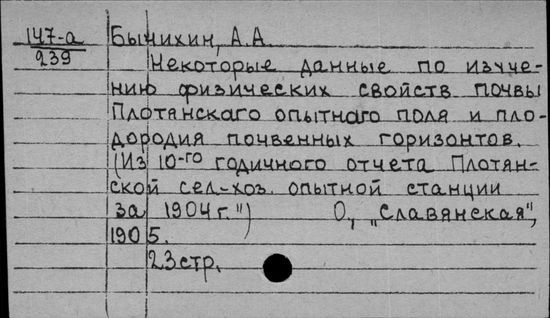 147-а Бычихин, А.А.
239
Некоторые данные по изуче-
нию физических свойств почвы
Плотянского опытного поля и пло-
дородия почвенных горизонтов.
(Из 10-го годичного отчета Плотян-
ской сел-хоз. опытной станции
за 1904 г.") О., "Славянская",
1905.
23 стр.